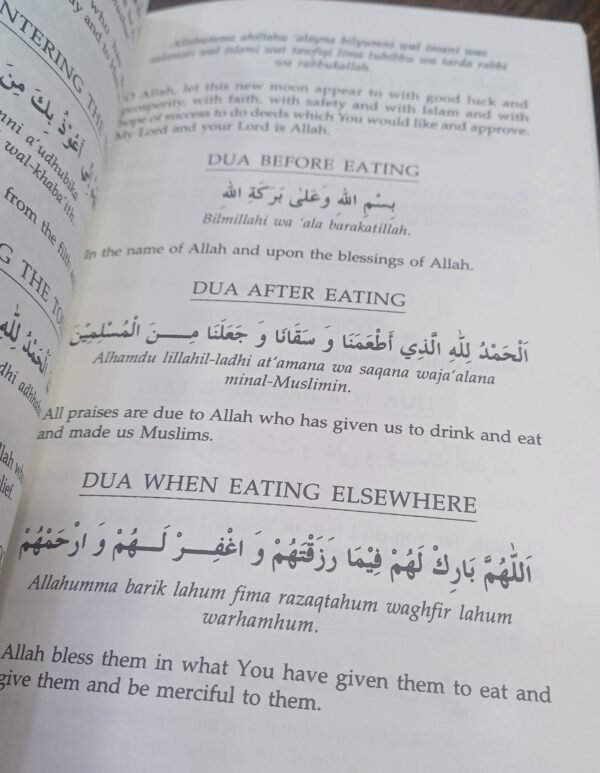 NTERING THE
أَعُوْذُ بِكَ مِنَ
a'udhubika
wal-khaba'ith.
from the filth
G THE TO
اَلْحَمْدُ لِلّٰهِ
Allahumma ahillahu 'alayna bilyumni wal imani was
salamati wal islami wat tawfiqi lima tuhibbu wa tarda rabbi
wa rabbukallah.
O Allah, let this new moon appear to with good luck and
prosperity, with faith, with safety and with Islam and with
hope of success to do deeds which You would like and approve.
My Lord and your Lord is Allah.
DUA BEFORE EATING
بِسْمِ اللهِ وَعَلىٰ بَرَكَةِ اللهِ
Bilmillahi wa 'ala barakatillah.
In the name of Allah and upon the blessings of Allah.
DUA AFTER EATING
اَلْحَمْدُ لِلّٰهِ الَّذِي أَطْعَمَنَا وَ سَقَانَا وَ جَعَلَنَا مِـنَ الْمُسْلِمِيْنَ
Alhamdu lillahil-ladhi at'amana wa saqana waja'alana
minal-Muslimin.
All praises are due to Allah who has given us to drink and eat
and made us Muslims.
DUA WHEN EATING ELSEWHERE
اَللّٰهُمَّ بَارِكْ لَهُمْ فِيْمَا رَزَقْتَهُمْ وَ اغْفِـرْ لَـهُمْ وَ ارْحَمْهُمْ
Allahumma barik lahum fima razaqtahum waghfir lahum
warhamhum.
Allah bless them in what You have given them to eat and
give them and be merciful to them.